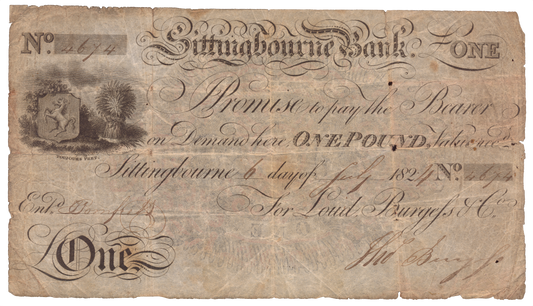 No. 4674 Sittingbourne Bank. £ONE
I Promise to pay the Bearer
on Demand here ONE POUND, Value recd.
Sittingbourne 6 day of July 1824 No. 4674
Entd. For Loud, Burgess & Co.
£One. Thos Burgess